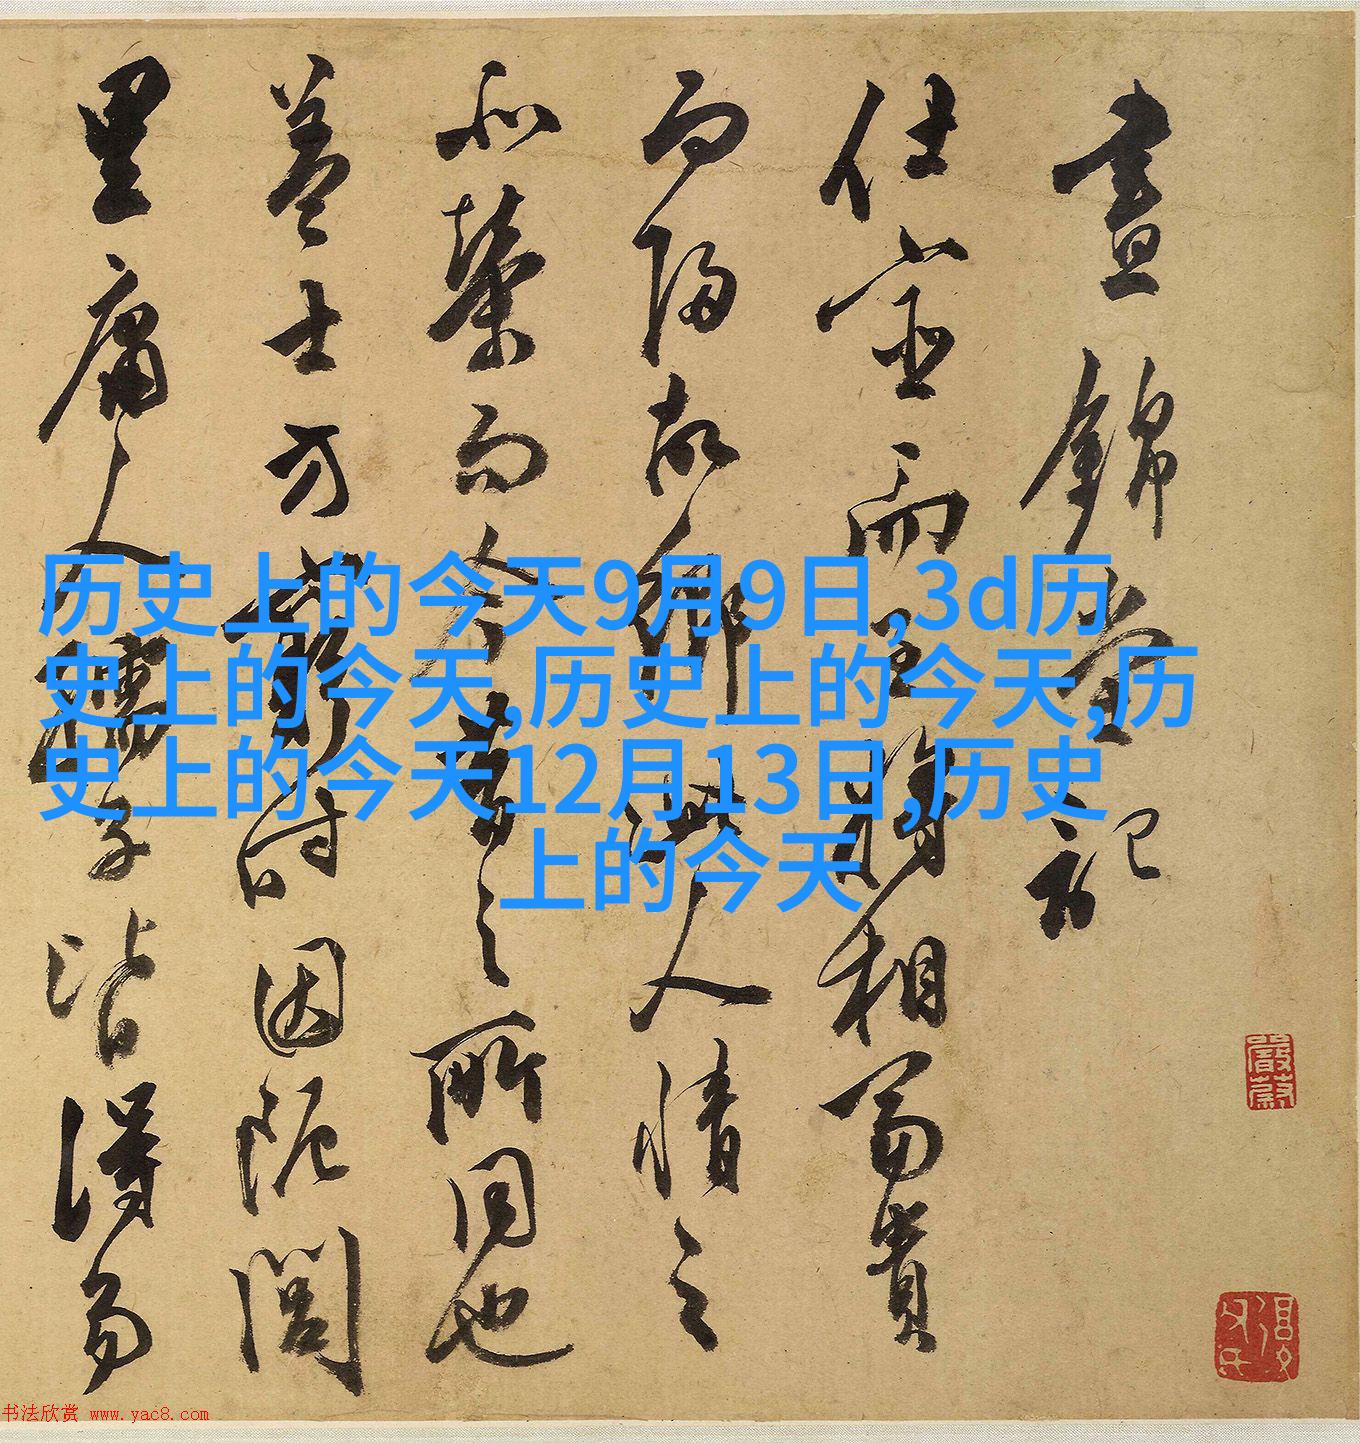 晝錦堂記
仕宦而至將相富貴
而歸故鄉此人情之
所榮而今昔之所同也
蓋士方窮時困阨閭
里庸人孺子皆得易
历史上的今天9月9日,3d历
史上的今天,历史上的今天,历
史上的今天12月13日,历史
上的今天
嚴蔚
书法欣赏 www.yac8.com